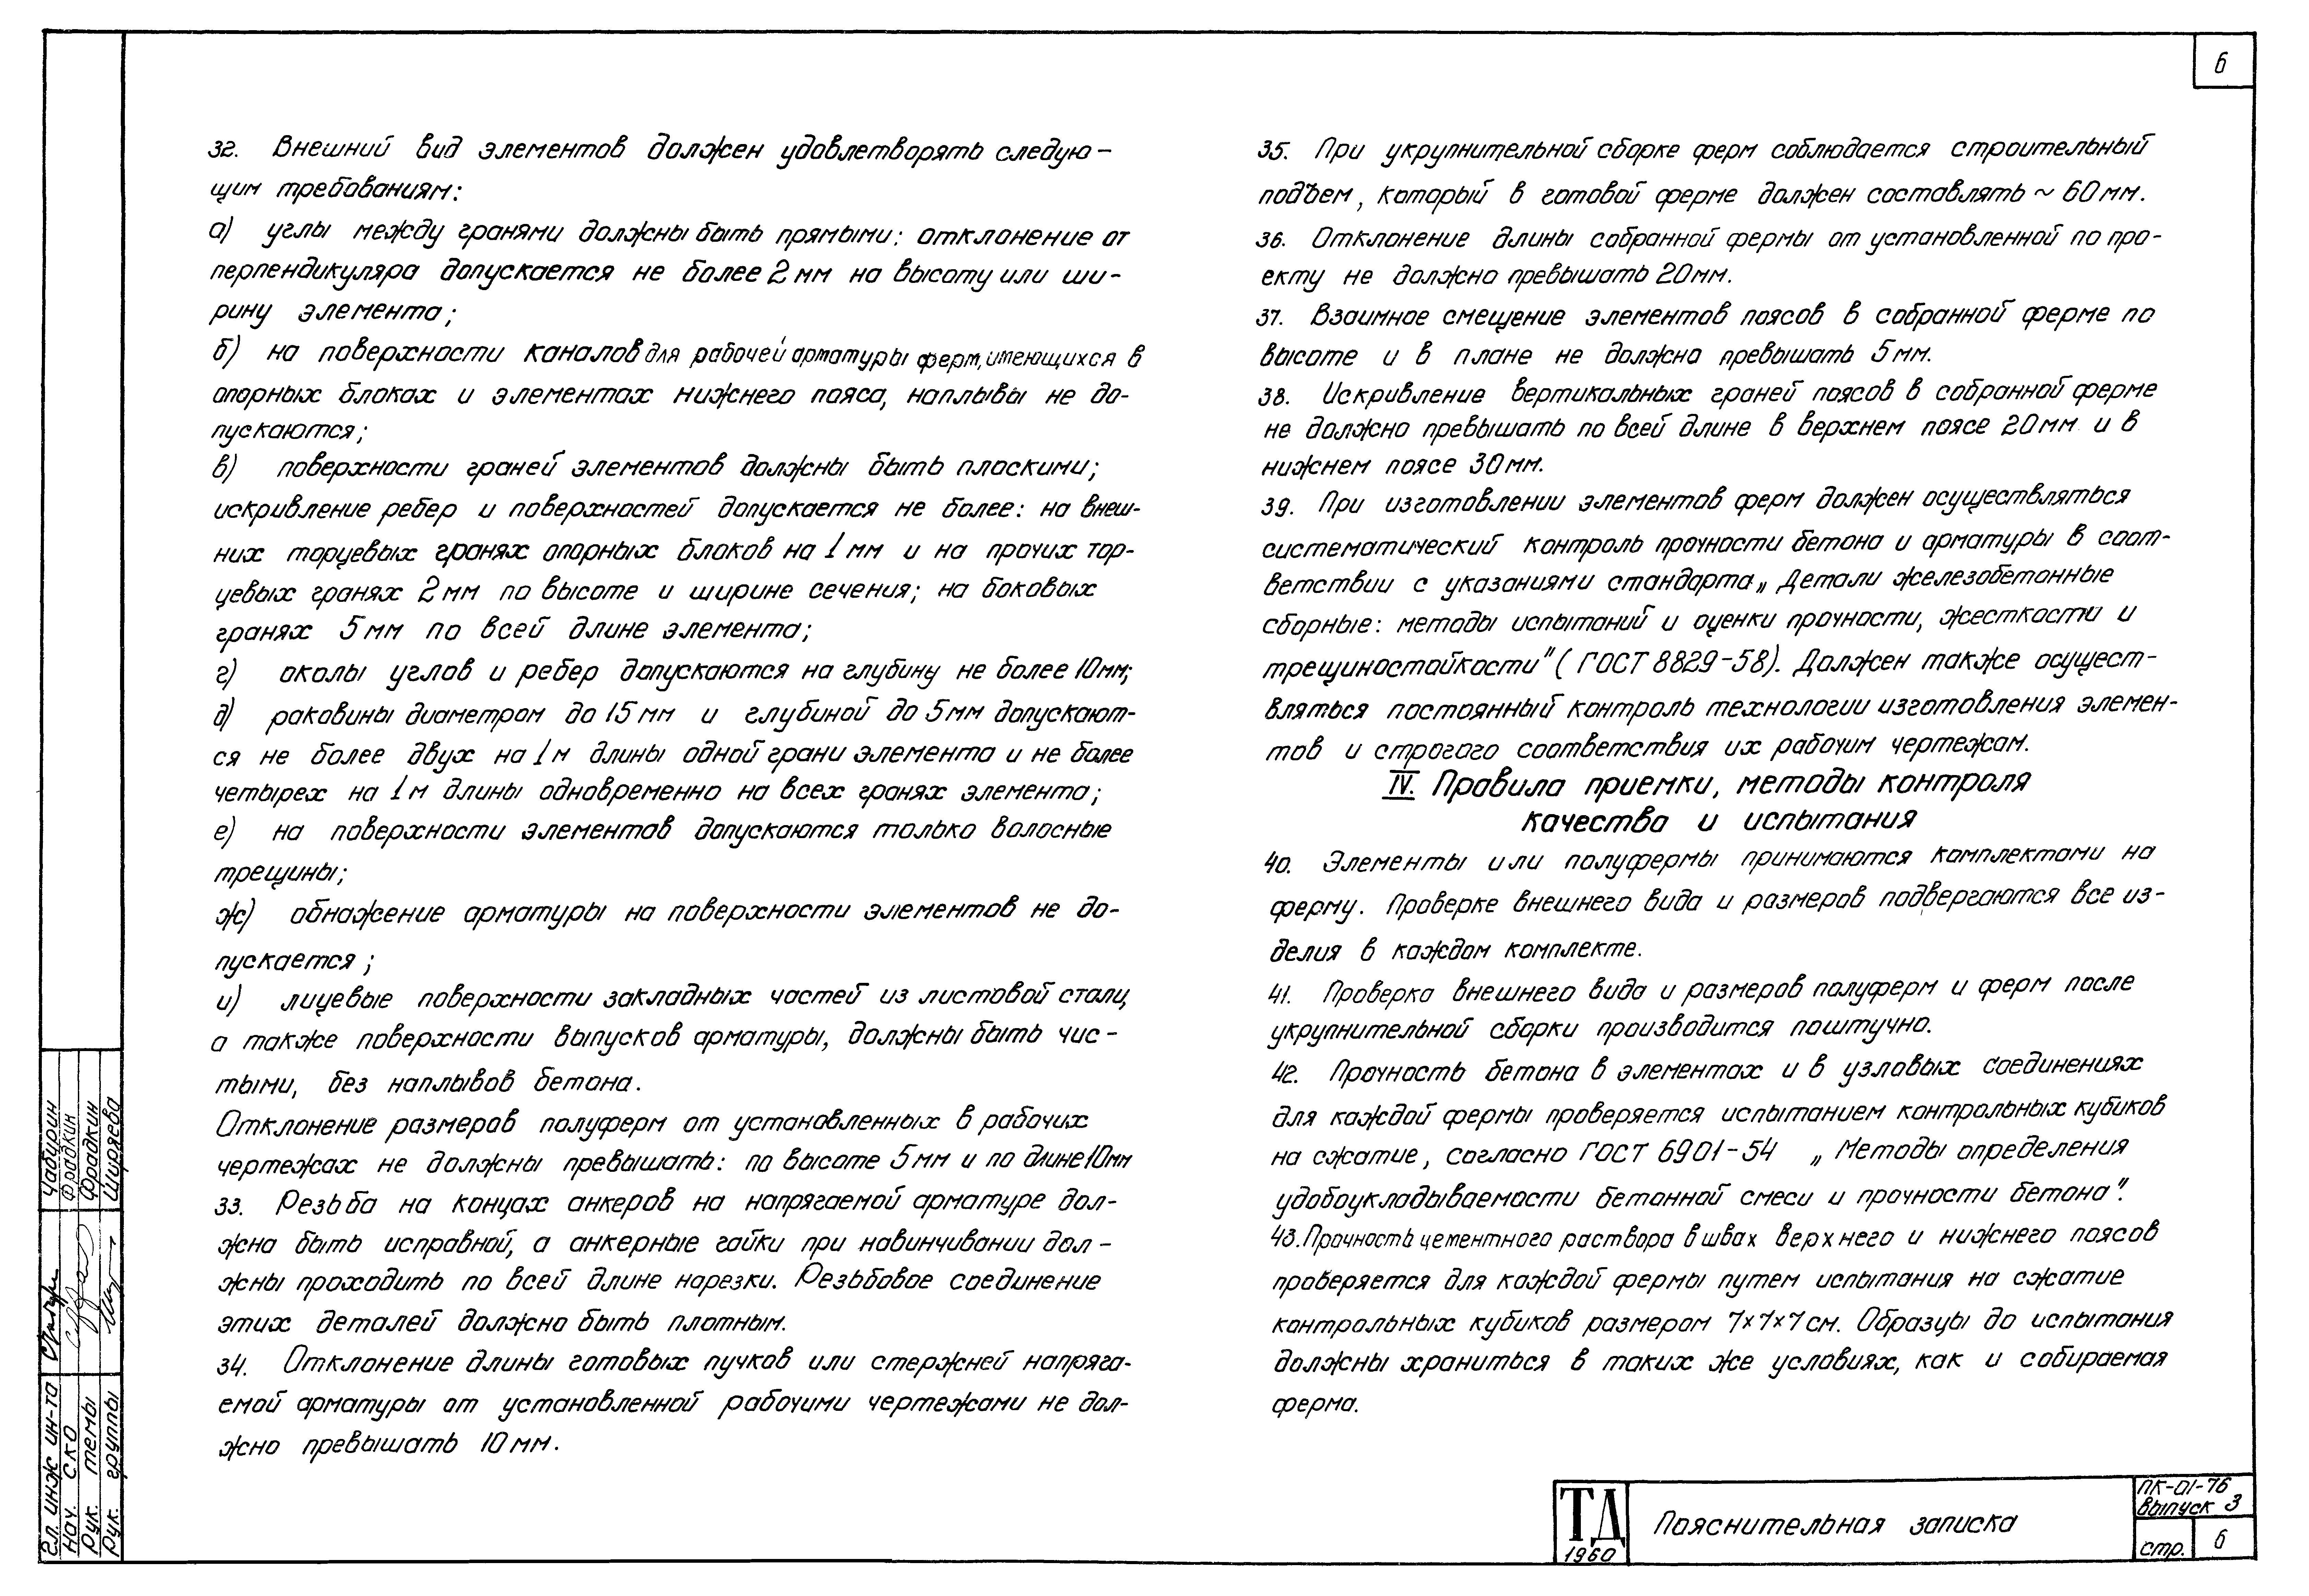 6
32. Внешний вид элементов должен удовлетворять следую-
щим требованиям:
а) углы между гранями должны быть прямыми: отклонение от
перпендикуляра допускается не более 2 мм на высоту или ши-
рину элемента;
б) на поверхности каналов для рабочей арматуры ферм, имеющихся в
опорных блоках и элементах нижнего пояса, наплывы не до-
пускаются;
в) поверхности граней элементов должны быть плоскими;
искривление ребер и поверхностей допускается не более: на внеш-
них торцевых гранях опорных блоков на 1 мм и на прочих тор-
цевых гранях 2 мм по высоте и ширине сечения; на боковых
гранях 5 мм по всей длине элемента;
г) околы углов и ребер допускаются на глубину не более 10 мм;
д) раковины диаметром до 15 мм и глубиной до 5 мм допускают-
ся не более двух на 1 м длины одной грани элемента и не более
четырех на 1 м длины одновременно на всех гранях элемента;
е) на поверхности элементов допускаются только волосные
трещины;
ж) обнажение арматуры на поверхности элементов не до-
пускается;
и) лицевые поверхности закладных частей из листовой стали,
а также поверхности выпусков арматуры, должны быть чис-
тыми, без наплывов бетона.
Отклонение размеров полуферм от установленных в рабочих
чертежах не должны превышать: по высоте 5 мм и по длине 10 мм
33. Резьба на концах анкеров на напрягаемой арматуре дол-
жна быть исправной, а анкерные гайки при навинчивании дол-
жны проходить по всей длине нарезки. Резьбовое соединение
этих деталей должно быть плотным.
34. Отклонение длины готовых пучков или стержней напряга-
емой арматуры от установленной рабочими чертежами не дол-
жно превышать 10 мм.
35. При укрупнительной сборке ферм соблюдается строительный
подъем, который в готовой ферме должен составлять ~ 60 мм.
36. Отклонение длины собранной фермы от установленной по про-
екту не должно превышать 20 мм.
37. Взаимное смещение элементов поясов в собранной ферме по
высоте и в плане не должно превышать 5 мм.
38. Искривление вертикальных граней поясов в собранной ферме
не должно превышать по всей длине в верхнем поясе 20 мм и в
нижнем поясе 30 мм.
39. При изготовлении элементов ферм должен осуществляться
систематический контроль прочности бетона и арматуры в соот-
ветствии с указаниями стандарта „Детали железобетонные
сборные: методы испытаний и оценки прочности, жесткости и
трещиностойкости" (ГОСТ 8829-58). Должен также осущест-
вляться постоянный контроль технологии изготовления элемен-
тов и строгого соответствия их рабочим чертежам.
IV. Правила приемки, методы контроля
качества и испытания
40. Элементы или полуфермы принимаются комплектами на
ферму. Проверке внешнего вида и размеров подвергаются все из-
делия в каждом комплекте.
41. Проверка внешнего вида и размеров полуферм и ферм после
укрупнительной сборки производится поштучно.
42. Прочность бетона в элементах и в узловых соединениях
для каждой фермы проверяется испытанием контрольных кубиков
на сжатие, согласно ГОСТ 6901-54 „Методы определения
удобоукладываемости бетонной смеси и прочности бетона".
43. Прочность цементного раствора в швах верхнего и нижнего поясов
проверяется для каждой фермы путем испытания на сжатие
контрольных кубиков размером 7×7×7 см. Образцы до испытания
должны храниться в таких же условиях, как и собираемая
ферма.
Гл. инж ин-та Чабурин
Нач. СКО Фрадкин
Рук. темы Фрадкин
Рук. группы Ширяева
ТД
1960
Пояснительная записка
ПК-01-76
выпуск 3
стр. 6